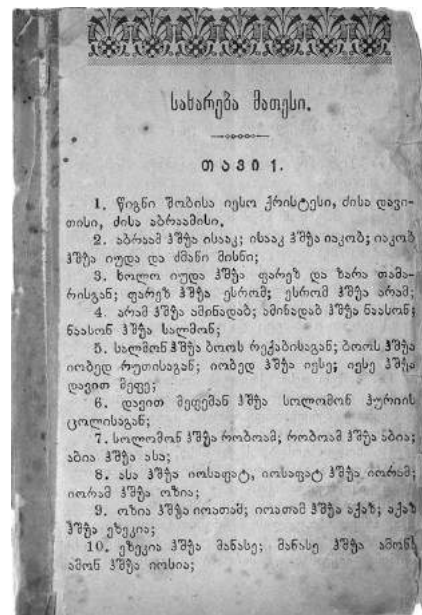 სახარება მათესი.
თავი 1.
1. წიგნი შობისა იესო ქრისტესი, ძისა დავი-
თისი, ძისა აბრაამისი.
2. აბრაამ ჰშვა ისააკ; ისააკ ჰშვა იაკობ; იაკობ
ჰშვა იუდა და ძმანი მისნი;
3. ხოლო იუდა ჰშვა ფარეზ და ზარა თამა-
რისგან; ფარეზ ჰშვა ესრომ; ესრომ ჰშვა არამ;
4. არამ ჰშვა ამინადაბ; ამინადაბ ჰშვა ნაასონ;
ნაასონ ჰშვა სალმონ;
5. სალმონ ჰშვა ბოოს რექაბისაგან; ბოოს ჰშვა
იობედ რუთისაგან; იობედ ჰშვა იესე; იესე ჰშვა
დავით მეფე;
6. დავით მეფემან ჰშვა სოლომონ ჰურიის
ცოლისაგან;
7. სოლომონ ჰშვა რობოამ; რობოამ ჰშვა აბია;
აბია ჰშვა ასა;
8. ასა ჰშვა იოსაფატ, იოსაფატ ჰშვა იორამ;
იორამ ჰშვა ოზია;
9. ოზია ჰშვა იოათამ; იოათამ ჰშვა აქაზ; აქაზ
ჰშვა ეზეკია;
10. ეზეკია ჰშვა მანასე; მანასე ჰშვა ამონ;
ამონ ჰშვა იოსია;